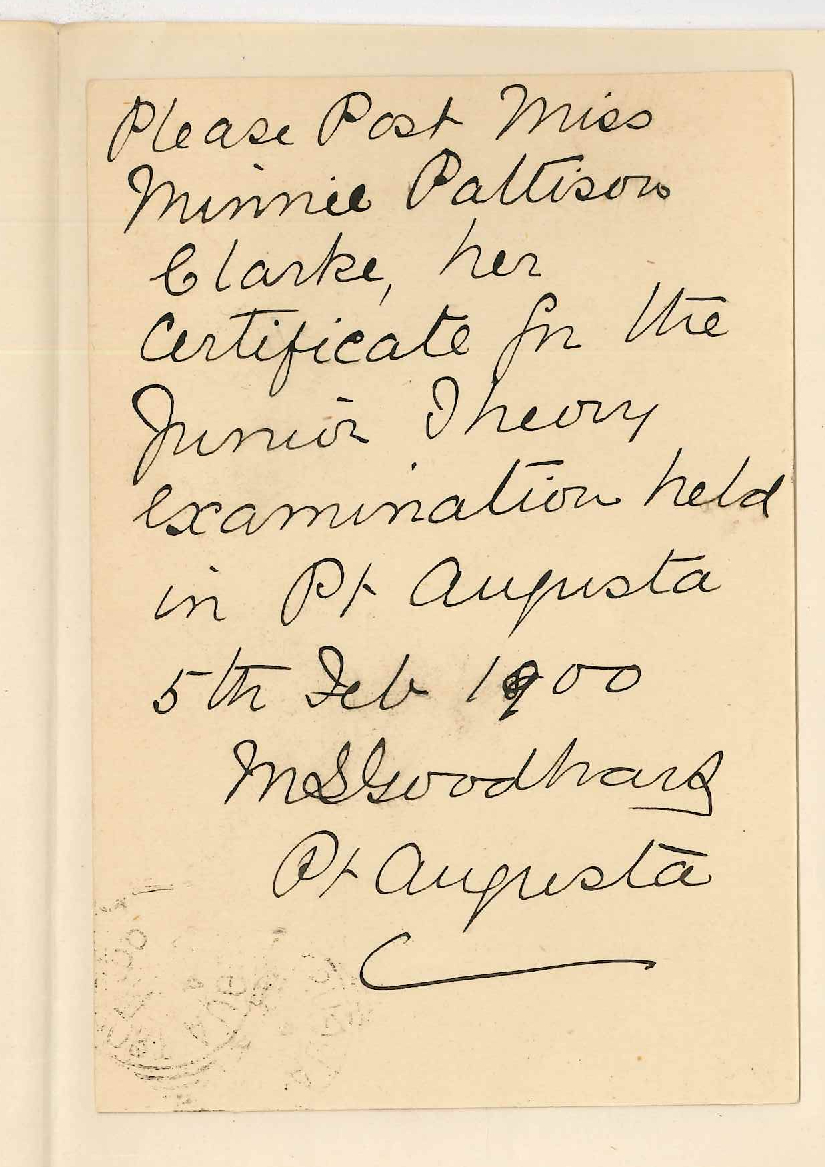 Please Post Miss
Minnie Pattison
Clarke, her
Certificate for the
Junior Theory
examination held
in Pt Augusta
5th Feb 1900
M S Goodhart
Pt Augusta